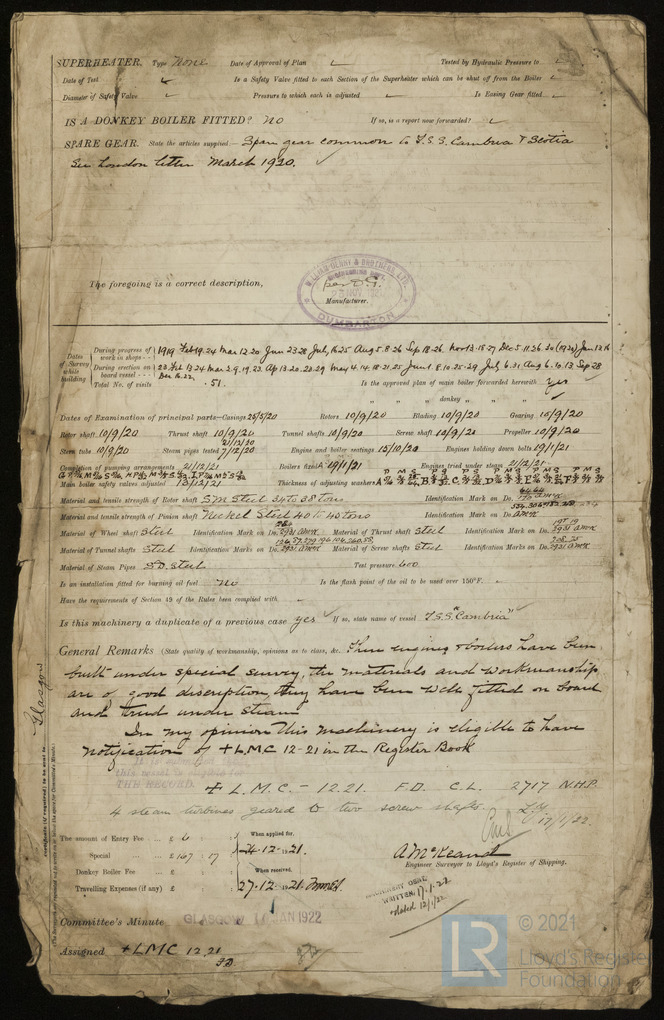 SUPERHEATER. Type None Date of Approval of Plan Tested by Hydraulic Pressure to
Date of Test Is a Safety Valve fitted to each Section of the Superheater which can be shut off from the Boiler
Diameter of Safety Valve Pressure to which each is adjusted Is Easing Gear fitted
IS A DONKEY BOILER FITTED? No If so, is a report now forwarded?
SPARE GEAR. State the articles supplied:— Spare gear common to T.S.S. Cambria & Scotia
See London letter March 1920.
The foregoing is a correct description,
WILLIAM DENNY & BROTHERS, LTD.
Manufacturer.
DUMBARTON
Dates of Survey while building
During progress of work in shops - - 1919 Feb 19.24 Mar 12.20 Jun 23.28 July, 16.25 Aug 5.8.26 Sep 18.26 Nov 13.15.27 Dec 5.11.26.30 (1920) Jan 13.16
During erection on board vessel - - - 23 Feb 13.24 Mar 2.9.19.23 Ap 13.20.22.29 May 4.14.18.21.25 June 1.8.10.25.29 July 6.21 Aug 6.10.13 Sep 28
Dec 16.22
Total No. of visits 51. Is the approved plan of main boiler forwarded herewith yes
" " " donkey " " "
Dates of Examination of principal parts—Casings 25/5/20 Rotors 10/9/20 Blading 10/9/20 Gearing 10/9/20
Rotor shaft 10/9/20 Thrust shaft 10/9/20 Tunnel shafts 10/9/20 Screw shaft 10/9/20 Propeller 10/9/20
Stern tube 10/9/20 Steam pipes tested 7/12/20 21/12/20 Engine and boiler seatings 15/10/20 Engines holding down bolts 19/1/21
Completion of pumping arrangements 21/12/21 Boilers fixed 19/1/21 Engines tried under steam 21/12/21
Main boiler safety valves adjusted 13/12/21 Thickness of adjusting washers
Material and tensile strength of Rotor shaft S.M Steel 34 to 38 tons Identification Mark on Do.
Material and tensile strength of Pinion shaft Nickel Steel 40 to 45 tons Identification Mark on Do.
Material of Wheel shaft Steel Identification Mark on Do. 2931 AMcK Material of Thrust shaft Steel Identification Mark on Do. 2931 AMcK
Material of Tunnel shafts Steel Identification Marks on Do. 2931 AMcK Material of Screw shafts Steel Identification Marks on Do. 2931 AMcK
Material of Steam Pipes S.D. Steel Test pressure 600
Is an installation fitted for burning oil fuel No Is the flash point of the oil to be used over 150°F.
Have the requirements of Section 49 of the Rules been complied with
Is this machinery a duplicate of a previous case yes If so, state name of vessel T.S.S. "Cambria"
General Remarks (State quality of workmanship, opinions as to class, &c. These engines & boilers have been
built under special survey, the materials and workmanship
are of good discription, they have been well fitted on board
and tried under steam
In my opinion this machinery is eligible to have
notification of + LMC 12-21 in the Register Book
THE RECORD.
+ L.M.C. - 12.21. F.D. C.L. 2717 N.H.P.
4 steam turbines geared to two screw shafts.
17/1/22.
Glasgow
The amount of Entry Fee ... £ 6 When applied for,
Special ... £ 167 . 17 24.12.1921.
Donkey Boiler Fee ... £ When received,
Travelling Expenses (if any) £ 27.12.1921
A McKeand
Engineer Surveyor to Lloyd's Register of Shipping.
MACHINERY CERT.
WRITTEN 17.1.22
dated 12/1/22.
Committee's Minute GLASGOW 10 JAN 1922
Assigned + LMC 12.21
F.D.
LR
© 2021
Lloyd's Register
Foundation